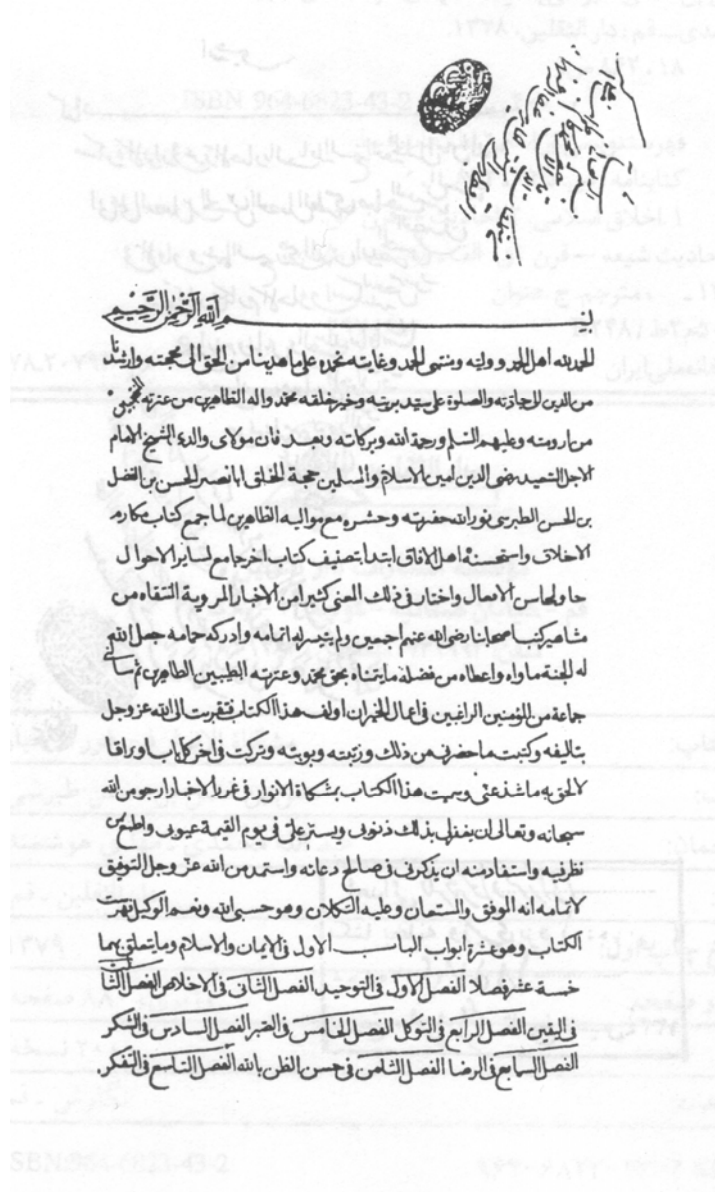 بسم الله الرحمن الرحيم
الحمد لله اهل الحمد ووليه ومنتهى الحمد وغايته نحمده على ما هدينا من الحق الى محجته وارشدنا
من الدين الى جادته والصلوة على سيد بريته وخير خلقه محمد واله الطاهرين من عترته
من ارومته وعليهم السلم ورحمة الله وبركاته وبعد فان مولاى والدى الشيخ الامام
الاجل السعيد رضى الدين امين الاسلام والمسلمين حجة الخلق ابا نصر الحسن بن الفضل
بن الحسن الطبرسى نور الله حضرته وحشره مع مواليه الطاهرين لما جمع كتاب مكارم
الاخلاق واستحسنه اهل الافاق ابتدا بتصنيف كتاب اخر جامع لساير الاحوال
حاو لمحاسن الافعال واختار فى ذلك المعنى كثيرا من الاخبار المروية المنتقاه من
مشاهير كتب اصحابنا رضى الله عنهم اجمعين ولم يتيسر له اتمامه وادركه حمامه جعل الله
له الجنة ماواه واعطاه من فضله ما يتمناه بحق محمد وعترته الطيبين الطاهرين ثم سالنى
جماعة من المؤمنين الراغبين فى اعمال الخير ان اولف هذا الكتاب فتقربت الى الله عز وجل
بتاليفه وكتبت ما حضرنى من ذلك ورتبته وبوبته وتركت فى اخر كل باب اوراقا
لالحق به ما شذ عنى وسميت هذا الكتاب بمشكاة الانوار فى غرر الاخبار ارجو من الله
سبحانه وتعالى ان يغفر لى بذلك ذنوبى ويستر على فى يوم القيمة عيوبى واطلع من
نظر فيه واستفاد منه ان يذكرنى فى صالح دعائه واستمد من الله عز وجل التوفيق
لاتمامه انه الموفق والمستعان وعليه التكلان وهو حسبى الله ونعم الوكيل فهرست
الكتاب وهو عشرة ابواب الباب الاول فى الايمان والاسلام وما يتعلق بهما
خمسة عشر فصلا الفصل الاول فى التوحيد الفصل الثانى فى الاخلاص الفصل الثالث
فى اليقين الفصل الرابع فى التوكل الفصل الخامس فى الصبر الفصل السادس فى الشكر
الفصل السابع فى الرضا الفصل الثامن فى حسن الظن بالله الفصل التاسع فى التفكر